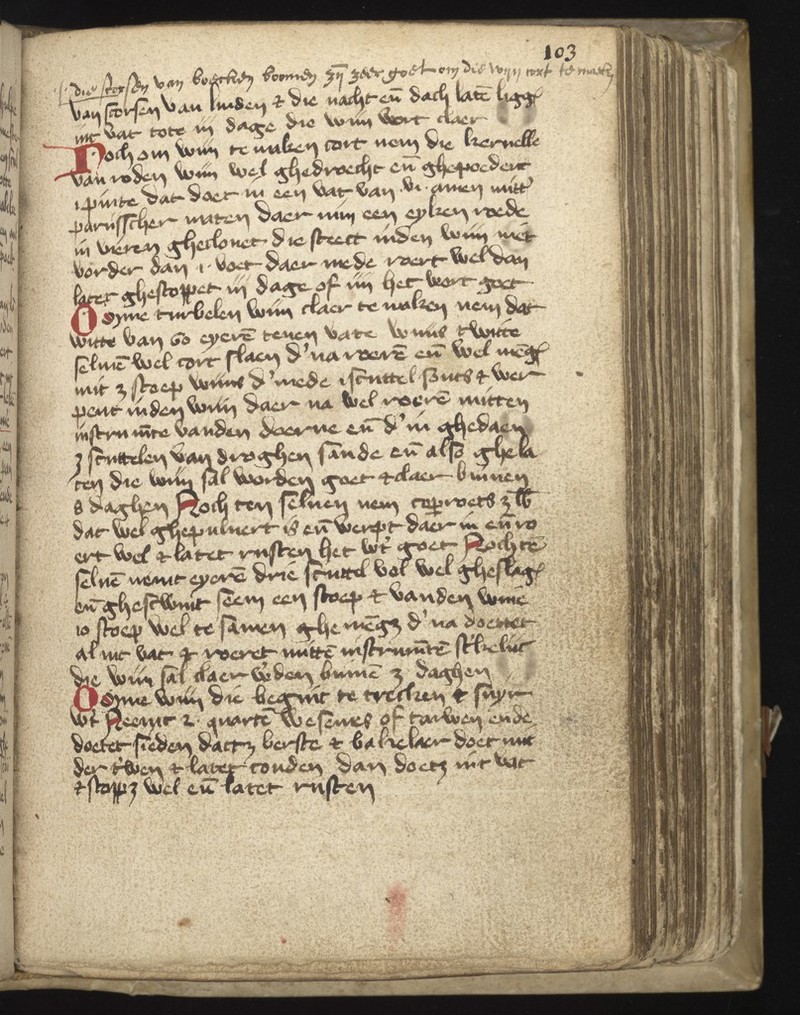 103
die scorsen van boecken boomen zijn zeer goet om die wijn cort te maken
van scorsen van linden & die nacht en̄ dach latē ligg
int vat tote iij dage die wijn wort claer
Noch om wijn te maken cort nem die kernelle
van roden wijn wel ghedroecht en̄ ghepoedert
1 pinte dat doet in een vat van .vi. amen
parijsscher maten daer nim een eyken roede
in vieren gheclouet die steect inden wijn niet
vorder dan .1. voet daer mede roert wel dan
latet ghestoppet iij dage of iiij het wort goet
Omme turbelen wijn claer te maken nem dat
witte van 60 eyerē tenen vate wijns twitte
seluē wel cort slaen d'na roerē en̄ wel meng
mit 3 stoep wijns d'mede 1 scuttel souts & wer
pent inden wijn daer na wel roerē mitten
instrumēte vanden doerne en̄ d' in ghedaen
3 scuttelen van droghen sande en̄ also ghela
ten die wijn sal worden goet & claer binnen
8 daghen Noch ten seluen nem coproets 3 lb
dat wel ghepuluert is en̄ werpt daer in en̄ ro
ert wel & latet rusten het wt' goet Noch tē
seluē nemt eyerē drie scuttel vol wel gheslag
en̄ ghescuumt seem een stoep & vanden wine
10 stoep wel te samen ghemēgz d'na doettet
al int vat & roeret mittē instrumētē
die wijn sal claer w'den binnē 3 daghen
Omme wijn die begint te trecken & suyr
wt' Neemt 2. quartē wesemes of tarwen ende
doetet sieden dattz berste & doet int
der t'wen & latet couden dan doetz int vat
& stoppz wel en̄ latet rusten